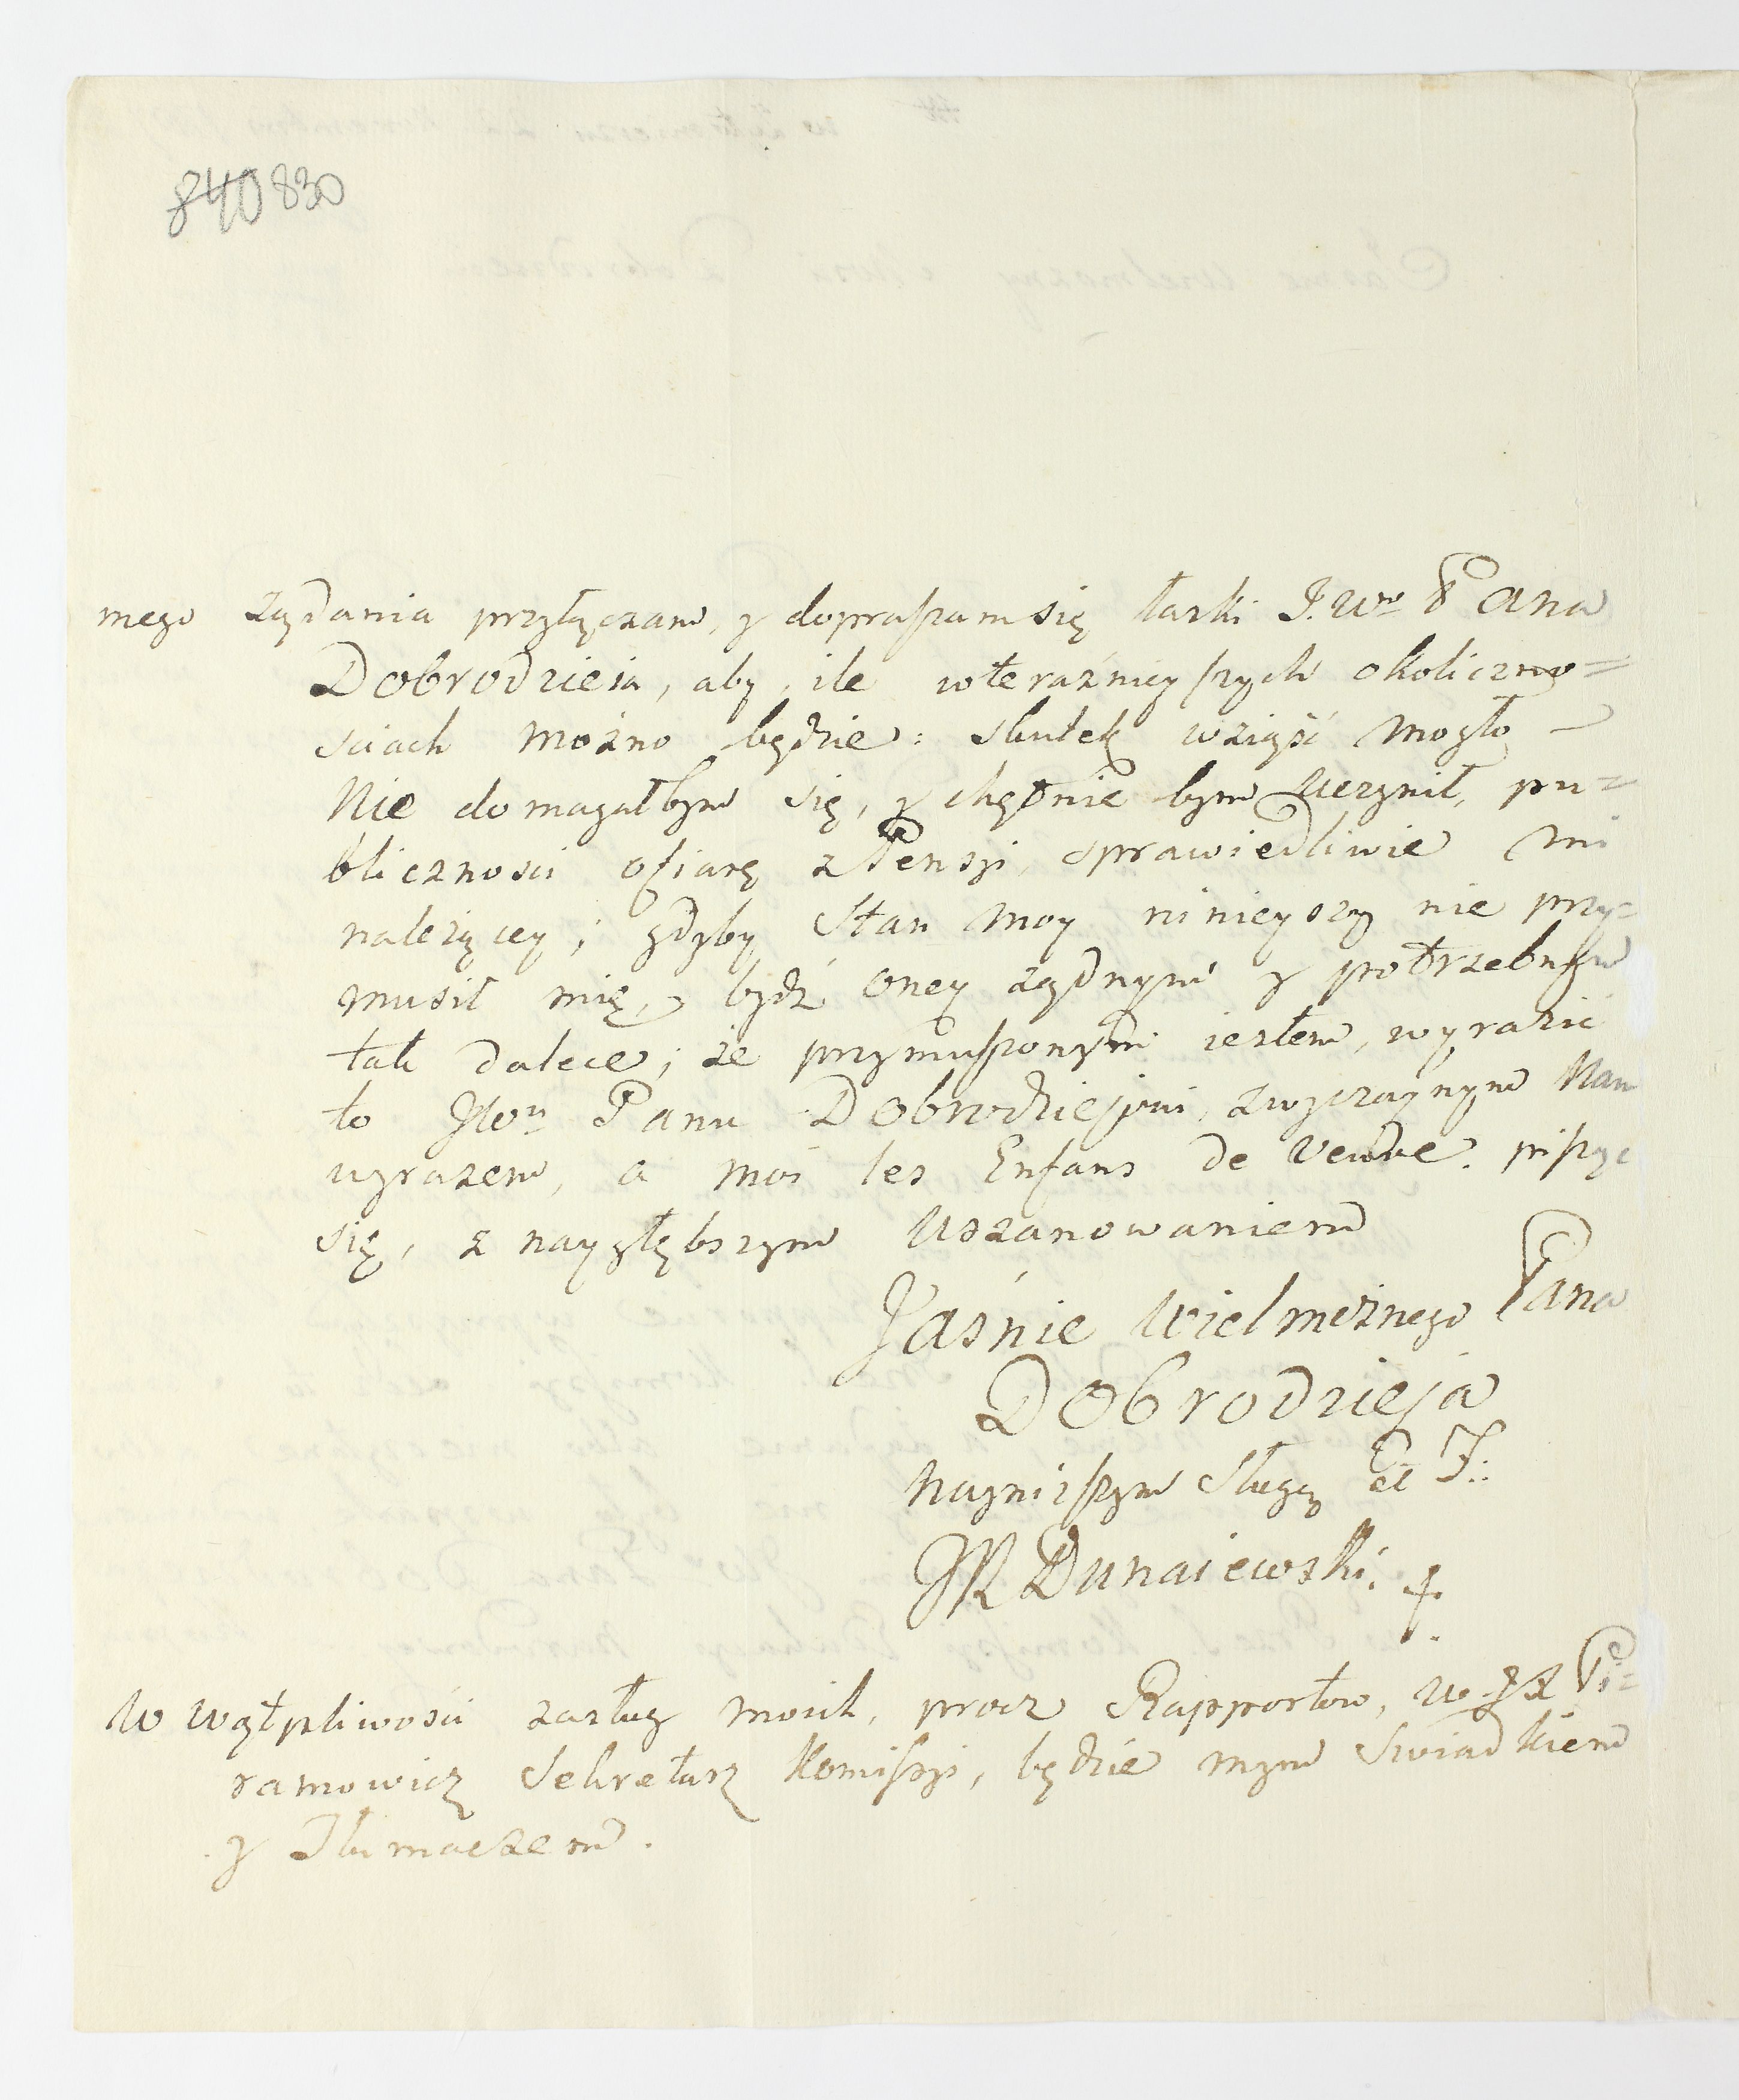 840 830
mego żądania przyłączam, y dopraszam się łaski J. Wo Pana
Dobrodzieia, aby, ile wteraźnieyszych okoliczno=
sciach możno będzie: skutek wziąść mogło —
Nie domagałbym się, y chętnie bym uczynił, pu=
bliczności ofiarę z Pensyi, sprawiedliwie mi
należącey; gdyby stan moy ninieyszy nie przy=
musił mię, bydź oney żądnym y potrzebnym
tak dalece; że przymuszonym iestem, wyrazić
to JWu Panu Dobrodziejowi, zwyczaynym Nam
wyrazem, a moi les Enfans de Veuve. piszę
się, z naygłębszym uszanowaniem
Jaśnie Wielmożnego Pana
Dobrodzieja
nayniższym sługą et F:.
JR Dunaiewski.
W wątpliwości zasług moich, procz Rapportow, W JX Pi=
ramowicz Sekretarz Komissyi, będzie mym Swiadkiem
y Tłumaczem.